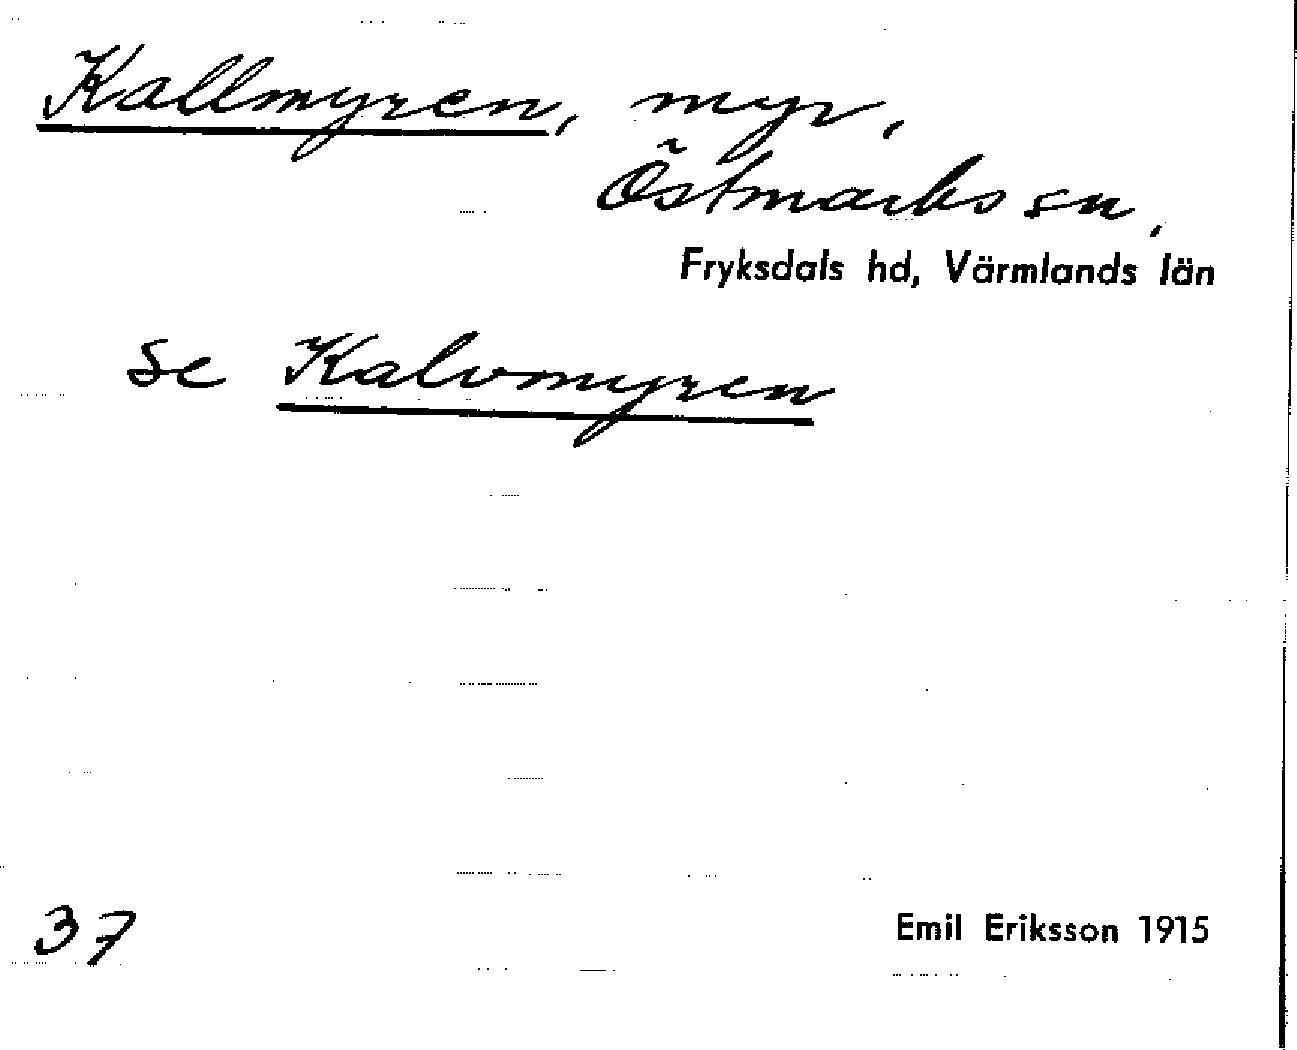 Kallmyren, myr,
Östmarks sn,
Fryksdals hd, Värmlands län
se Kalvmyren
37
Emil Eriksson 1915